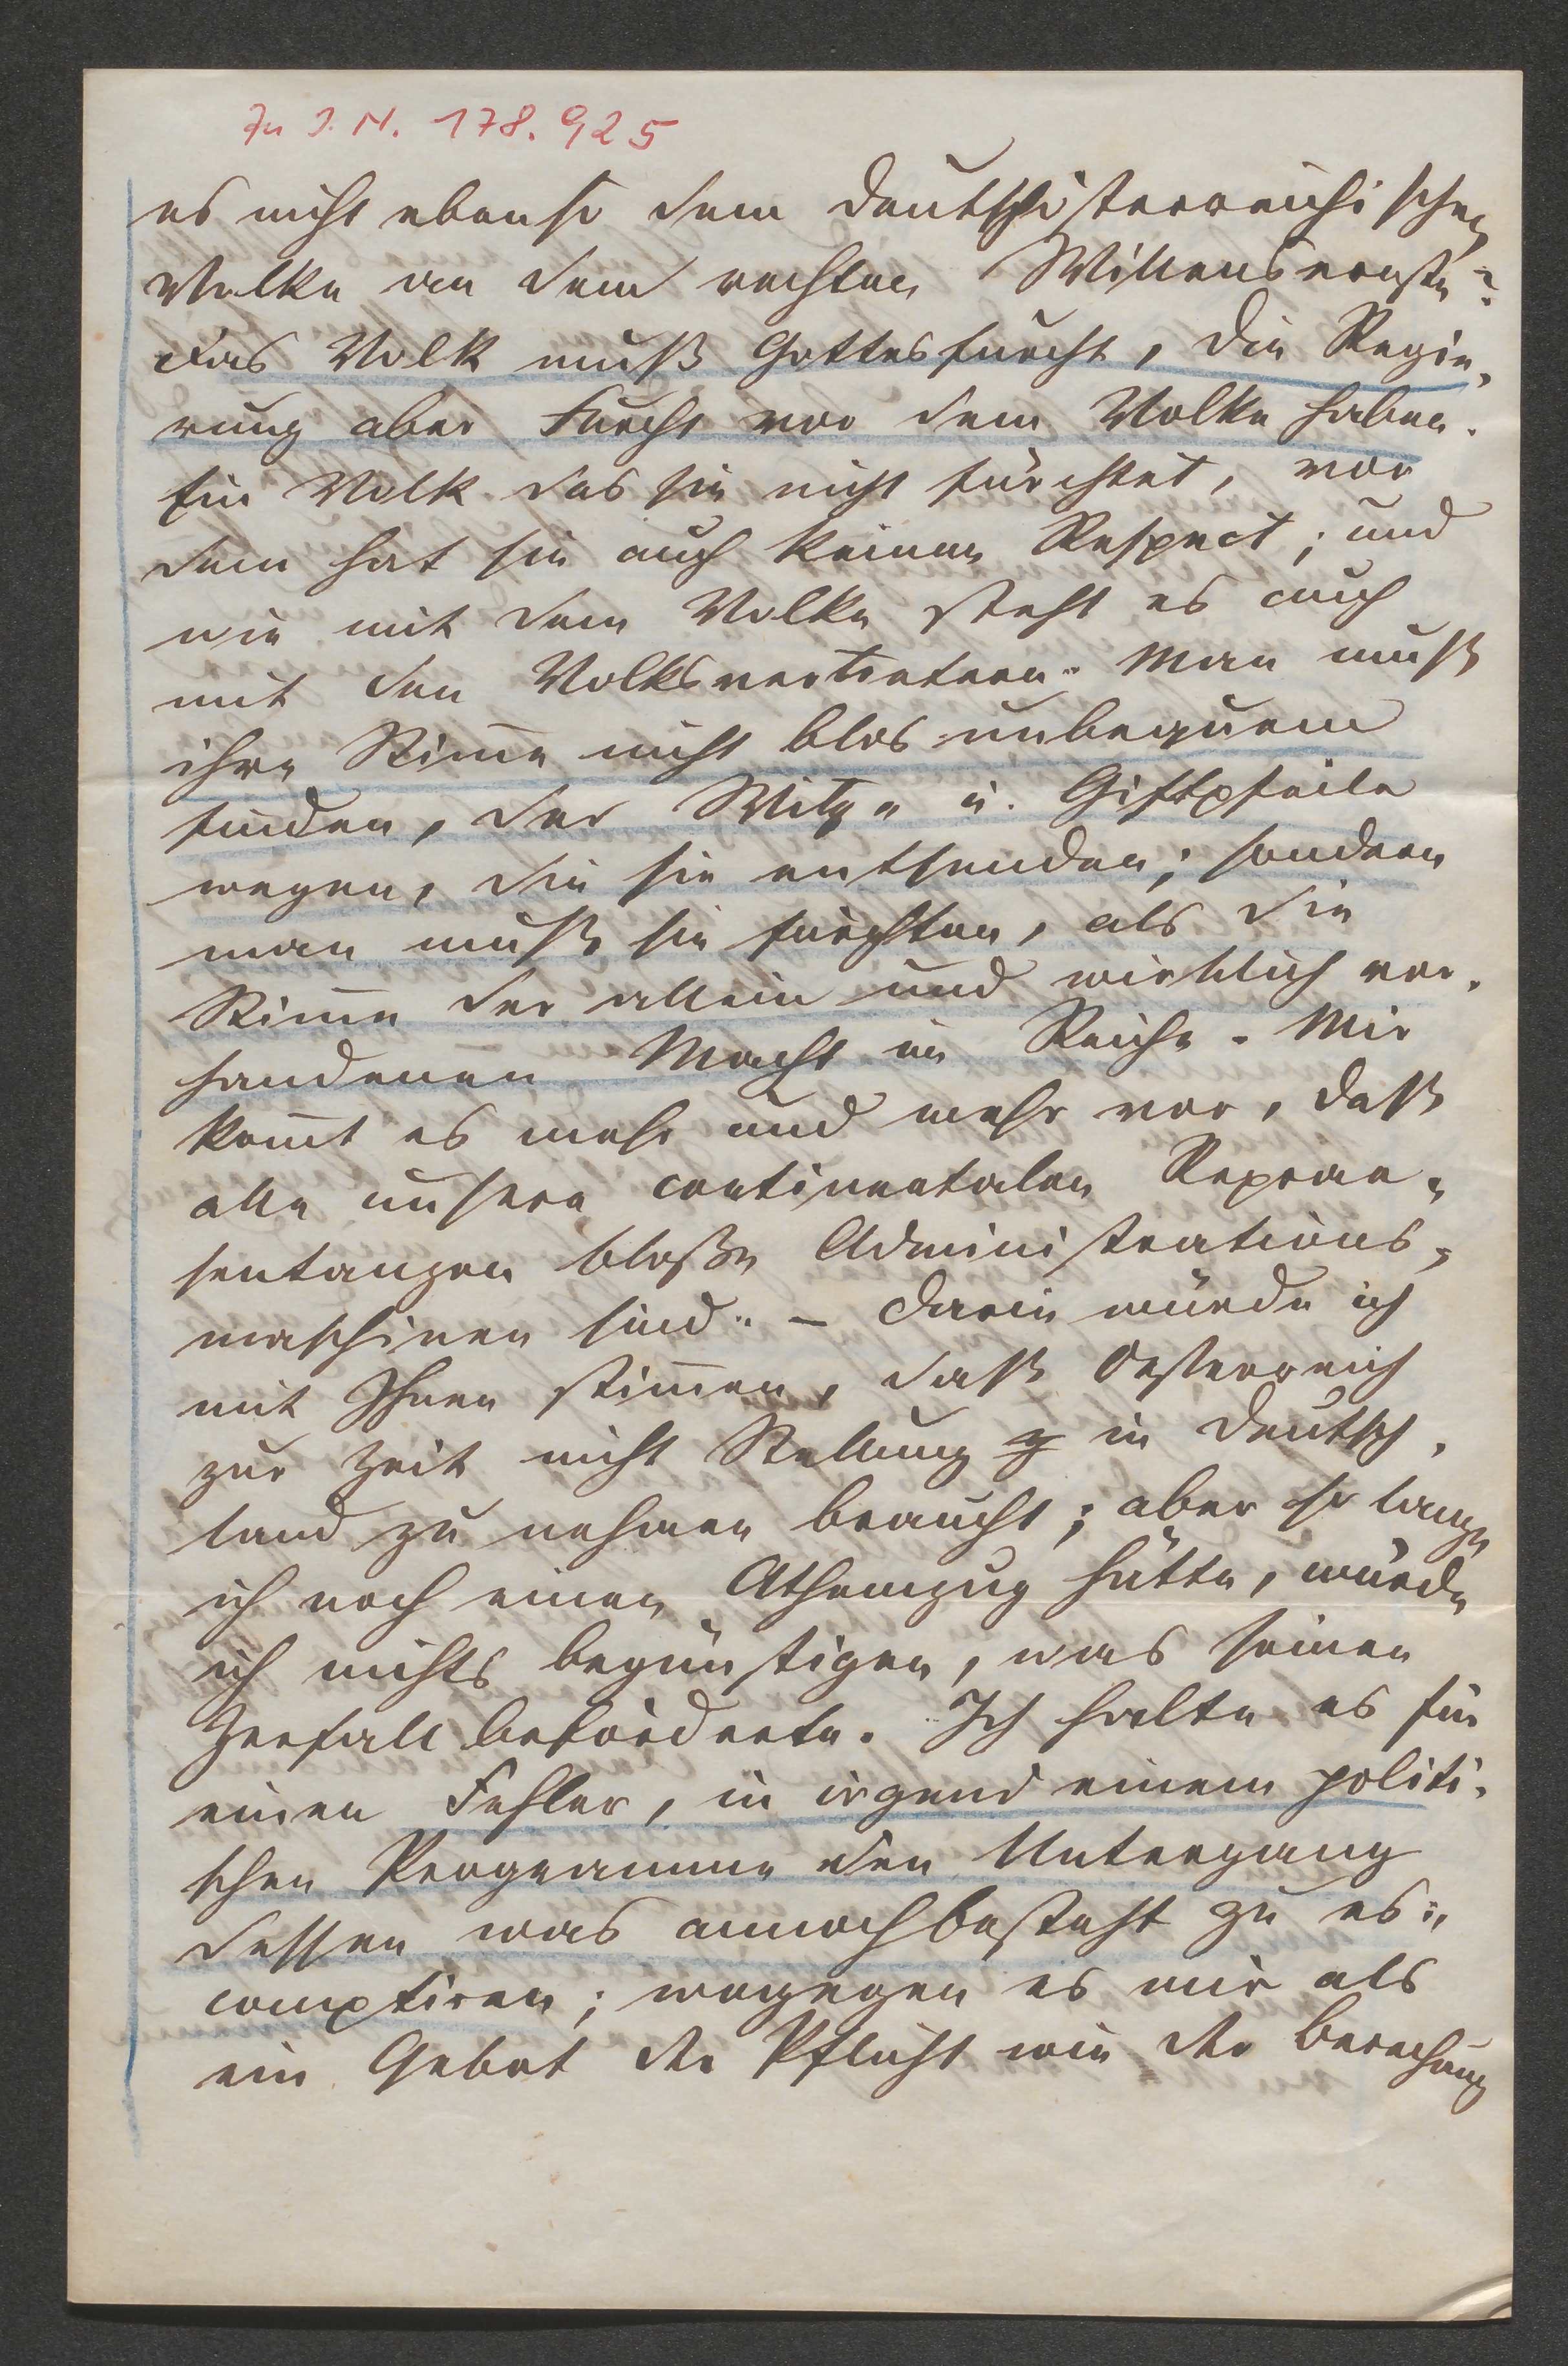 Zu I.N. 178.925
es nicht ebenso dem deutschösterreichischen
Volke an dem rechten Willensernste?
Das Volk muß Gottesfurcht, die Regie-
rung aber Furcht vor dem Volke haben.
Ein Volk das sie nicht fürchtet, vor
dem hat sie auch keinen Respect; und
wie mit dem Volke steht es auch
mit den Volksvertretern. Man muß
ihre Stim̅e nicht blos unbequem
finden, der Witz- u. Giftpfeile
wegen, die sie entsenden; sondern
man muß sie fürchten, als die
Stim̅e der allein und wirklich vor-
handenen Macht im Reiche. Mir
kom̅t es mehr und mehr vor, daß
alle unsere continentalen Reprae-
sentanzen bloße Administrations-
maschinen sind. – Darin würde ich
mit Ihnen stim̅en, daß Oesterreich
zur Zeit nicht Stellung in Deutsch-
land zu nehmen braucht; aber so lange
ich noch einen Athemzug hätte, würde
ich nichts begünstigen, was seinen
Zerfall beförderte. Ich halte es für
einen Fehler, in irgend einem politi-
schen Programme den Untergang
dessen was annoch besteht zu es-
comptiren; wogegen es mir als
ein Gebot der Pflicht wie der Berechnung